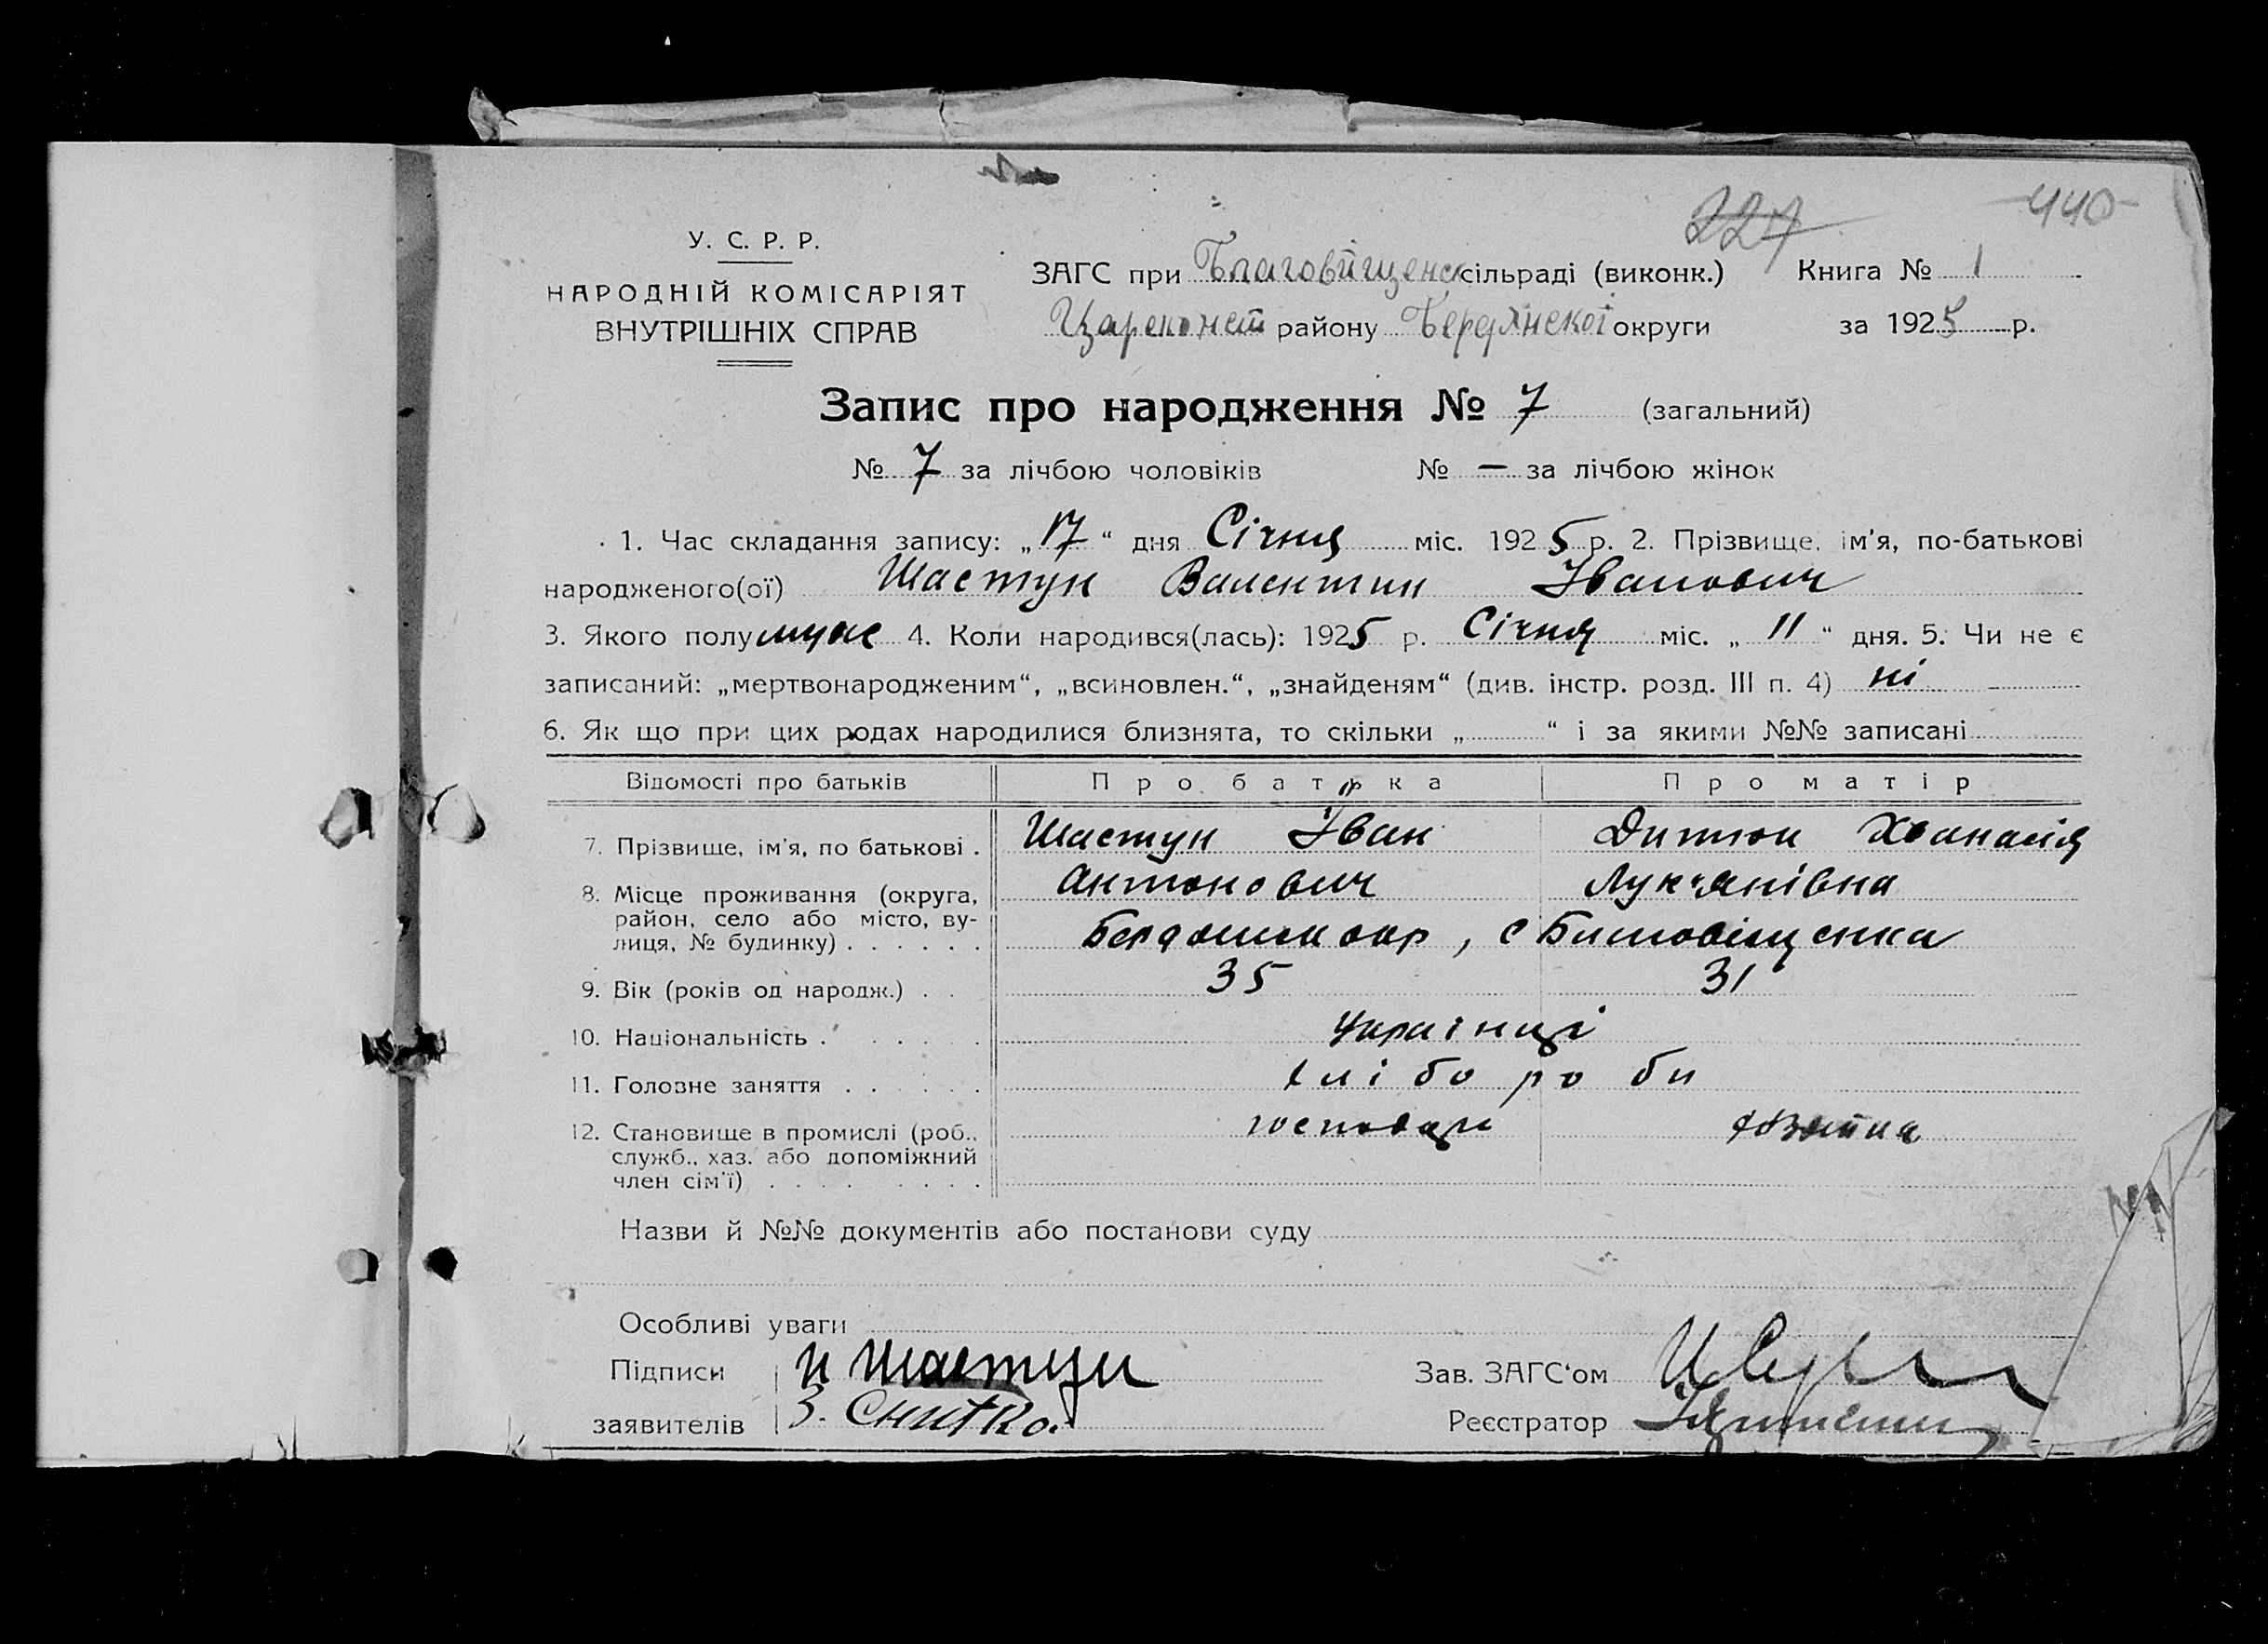 227 440
У. С. Р. Р.
НАРОДНІЙ КОМІСАРІЯТ
ВНУТРІШНІХ СПРАВ
ЗАГС при Благовіщенск сільраді (виконк.) Книга № 1
району Бердянскої округи за 1925 р.
Запис про народження № 7 (загальний)
№ 7 за лічбою чоловіків № — за лічбою жінок
1. Час складання запису: „17“ дня Січня міс. 1925 р. 2. Прізвище, ім'я, по-батькові
народженого(ої) Шастун Валентин Іванович
3. Якого полу муж 4. Коли народився(лась): 1925 р. Січня міс. „11“ дня. 5. Чи не є
записаний: „мертвонародженим“, „всиновлен.“, „знайденям“ (див. інстр. розд. III п. 4) ні
6. Як що при цих родах народилися близнята, то скільки „ “ і за якими №№ записані
Відомості про батьків Про батька Про матір
7. Прізвище, ім'я, по батькові . Шастун Іван
Антонович Лук'янівна
8. Місце проживання (округа,
район, село або місто, ву-
лиця, № будинку) . . . . . . окр, с
9. Вік (років од народж.) . . 35 31
10. Національність . . . . . Українці
11. Головне заняття . . . . . хлібороби
12. Становище в промислі (роб., господар
служб., хаз. або допоміжний
член сім'ї) . . . . . . . .
Назви й №№ документів або постанови суду
Особливі уваги
Підписи И Шастун Зав. ЗАГС'ом
заявителів З. Снитко. Реєстратор